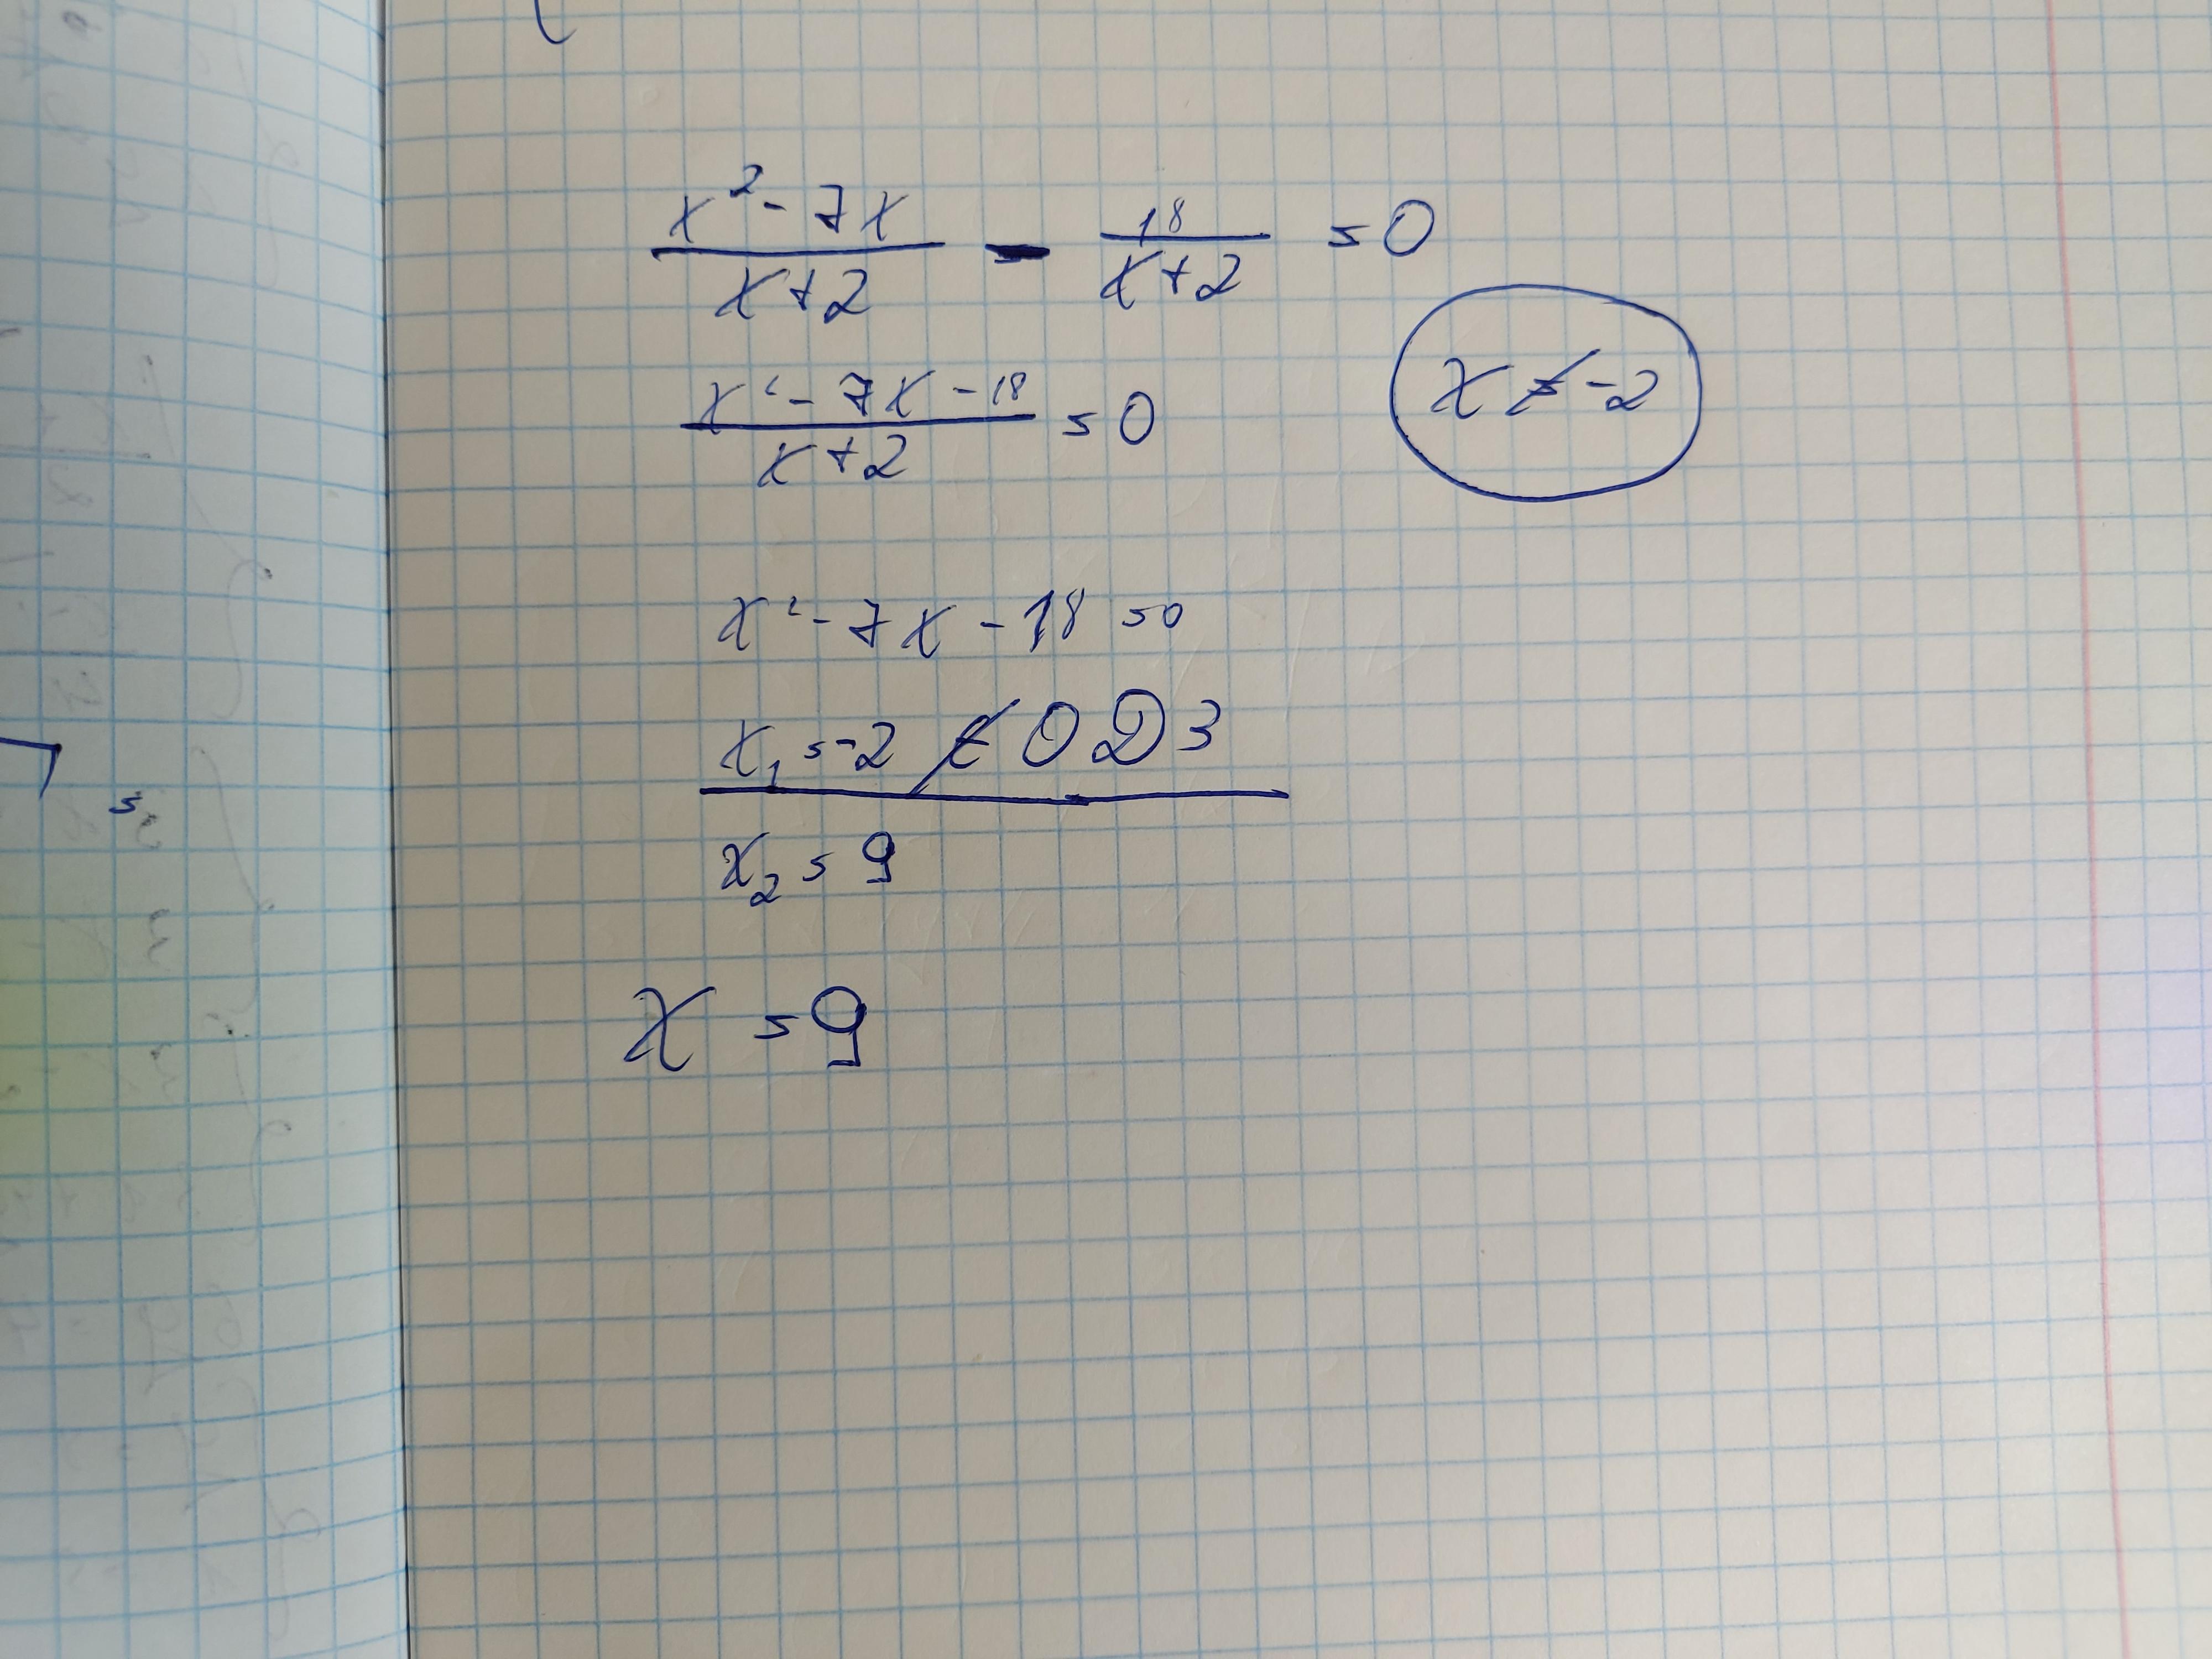 x² - 7x / x+2 - 18 / x+2 = 0
x ≠ -2
x² - 7x - 18 / x+2 = 0
x² - 7x - 18 = 0
x₁ = -2 ∉ ОДЗ
x₂ = 9
x = 9